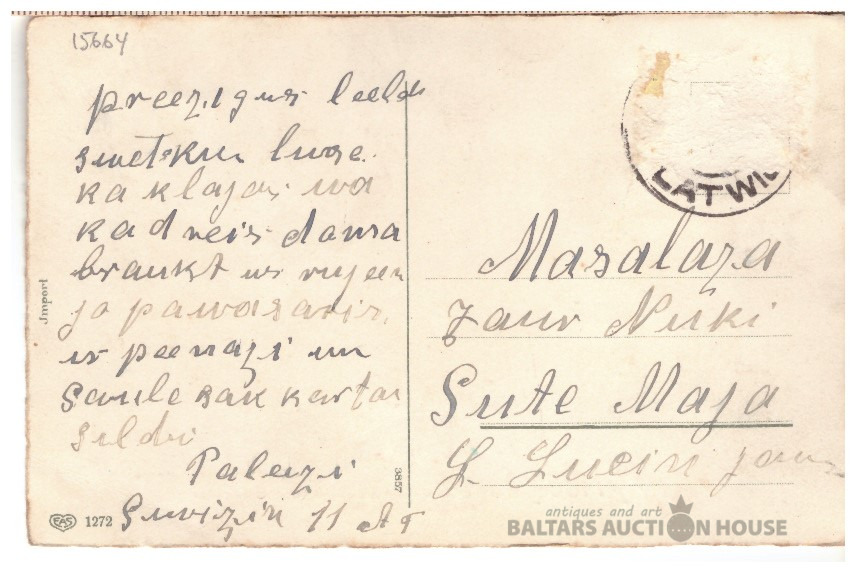 15664
preezigus leelds
swetkus luse
ka klajas wa
kad reis doma
braukt us rujeen
jo pawasaris
ir peenazi un
saule sak karstai
sildi
Paleezi
11
Import
3857
EAS 1272
LATWI
Masalaza
Jaun Nuki
Sute Maja
antiques and art
BALTARS AUCTION HOUSE